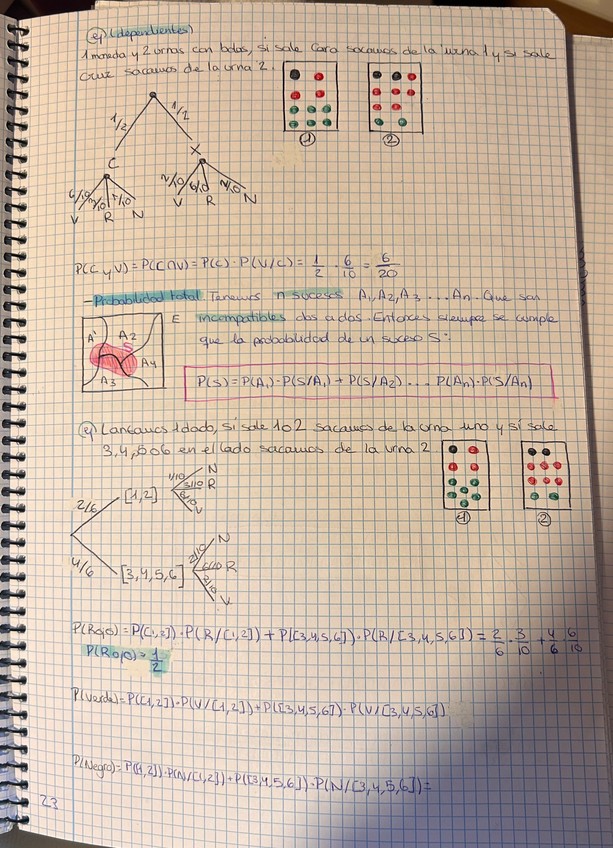 ej (dependientes)
1 moneda y 2 urnas con bolas, si sale cara sacamos de la urna 1 y si sale
cruz sacamos de la urna 2.
1/2 1/2
C X
6/10 1/10 2/10 6/10 2/10
V R N V R N
1 2
P(C y V) = P(C∩V) = P(C) · P(V/C) = 1/2 · 6/10 = 6/20
- Probabilidad total Tenemos n sucesos A1, A2, A3 ... An. Que son
E incompatibles dos a dos. Entonces siempre se cumple
que la probabilidad de un suceso S:
A1 A2 S A4 A3
P(S) = P(A1) · P(S/A1) + P(S/A2) .... P(An) · P(S/An)
ej Lanzamos 1 dado, si sale 1 o 2 sacamos de la urna uno y si sale
3,4,5 o 6 en el lado sacamos de la urna 2
1 2
2/6 [1,2] 1/10 N 3/10 R 6/10 V
4/6 [3,4,5,6] 2/10 N 6/10 R 2/10 V
P(Rojo) = P([1,2]) · P(R/[1,2]) + P[3,4,5,6]) · P(R/[3,4,5,6]) = 2/6 · 3/10 + 4/6 · 6/10
P(Rojo) = 1/2
P(Verde) = P([1,2]) · P(V/[1,2]) + P([3,4,5,6]) · P(V/[3,4,5,6])
P(Negro) = P([1,2]) · P(N/[1,2]) + P([3,4,5,6]) · P(N/[3,4,5,6]) =
23